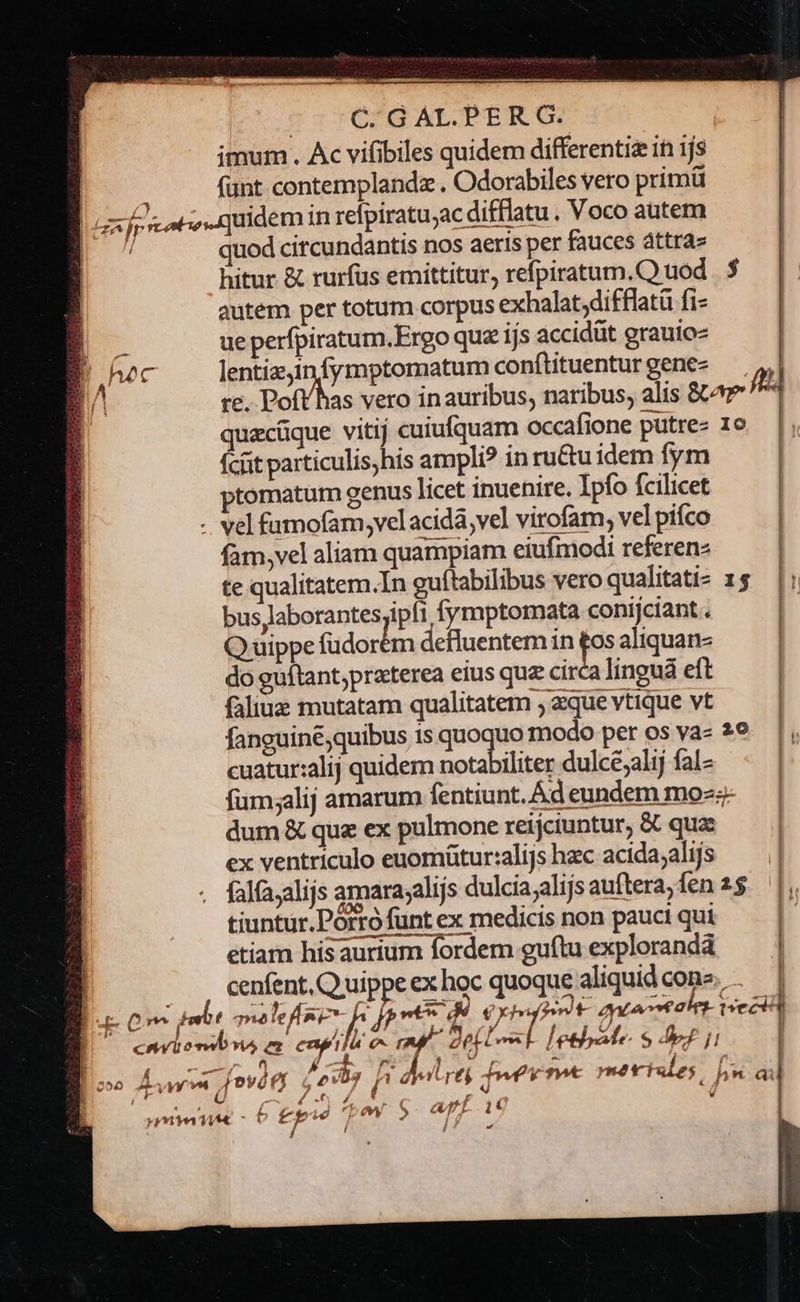 C. GAL. PERG.
imum. Ac visibiles quidem differentiæ in ijs
ſunt contemplandæ. Odorabiles vero primū
quidem in reſpiratu, ac difflatu. Voco autem
quod circundantis nos aeris per fauces attra⸗
hitur & rurſus emittitur, reſpiratum. Quod 5
autem per totum corpus exhalat, difflatū ſi⸗
ue perſpiratum. Ergo quæ ijs accidūt grauio⸗
hoc lentiæ, in ſymptomatum conſtituentur gene⸗
re. Poſt has vero in auribus, naribus, alis &
quæcūque vitij cuiuſquam occaſione putre⸗ 10
ſcūt particulis, his ampli⁹ in ructu idem ſym
ptomatum genus licet inuenire. Ipſo ſcilicet
vel fumoſam, vel acidā, vel viroſam, vel piſco
ſam, vel aliam quampiam eiuſmodi referen⸗
te qualitatem. In guſtabilibus vero qualitati⸗ 15
bus, laborantes, ipſi ſymptomata conijciant.
Quippe ſudorem defluentem in eos aliquan⸗
do guſtant, præterea eius quæ circa linguā eſt
ſaliuæ mutatam qualitatem, æque vtique vt
ſanguinē, quibus is quoquo modo per os va⸗ 20
cuatur: alij quidem notabiliter dulcē, alij ſal⸗
ſum, alij amarum ſentiunt. Ad eundem mo⸗
dum & quæ ex pulmone reijciuntur, & quæ
ex ventriculo euomūtur: alijs hæc acida, alijs
ſalſa, alijs amara, alijs dulcia, alijs auſtera, ſen 25
tiuntur. Porro ſunt ex medicis non pauci qui
etiam his aurium ſordem guſtu explorandā
cenſent. Quippe ex hoc quoque aliquid con⸗